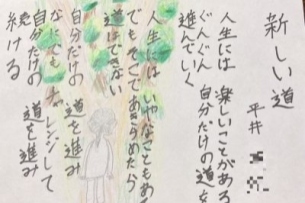 新しい道
平井
人生には 楽しいことがある
ぐんぐん 自分だけの道を
進んでいく
人生には いやなこともある
でもそこであきらめたら
道はできない
自分だけの 道を進み
なにでも チャレンジして
自分だけの 道を進み
続ける